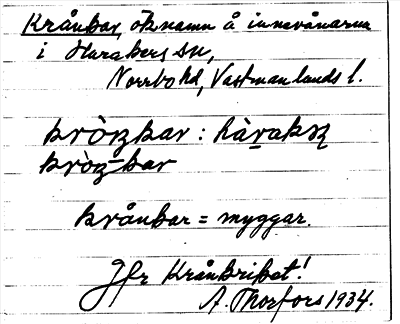 Krånbar, öknamn å innevånarna
i Haraker sn,
Norrbo hd, Västmanlands l.
kròn̥bar : hàrakər
kròn̥bar
krånbar = myggar.
Jfr Krånkriket!
A. Thorfors 1934.